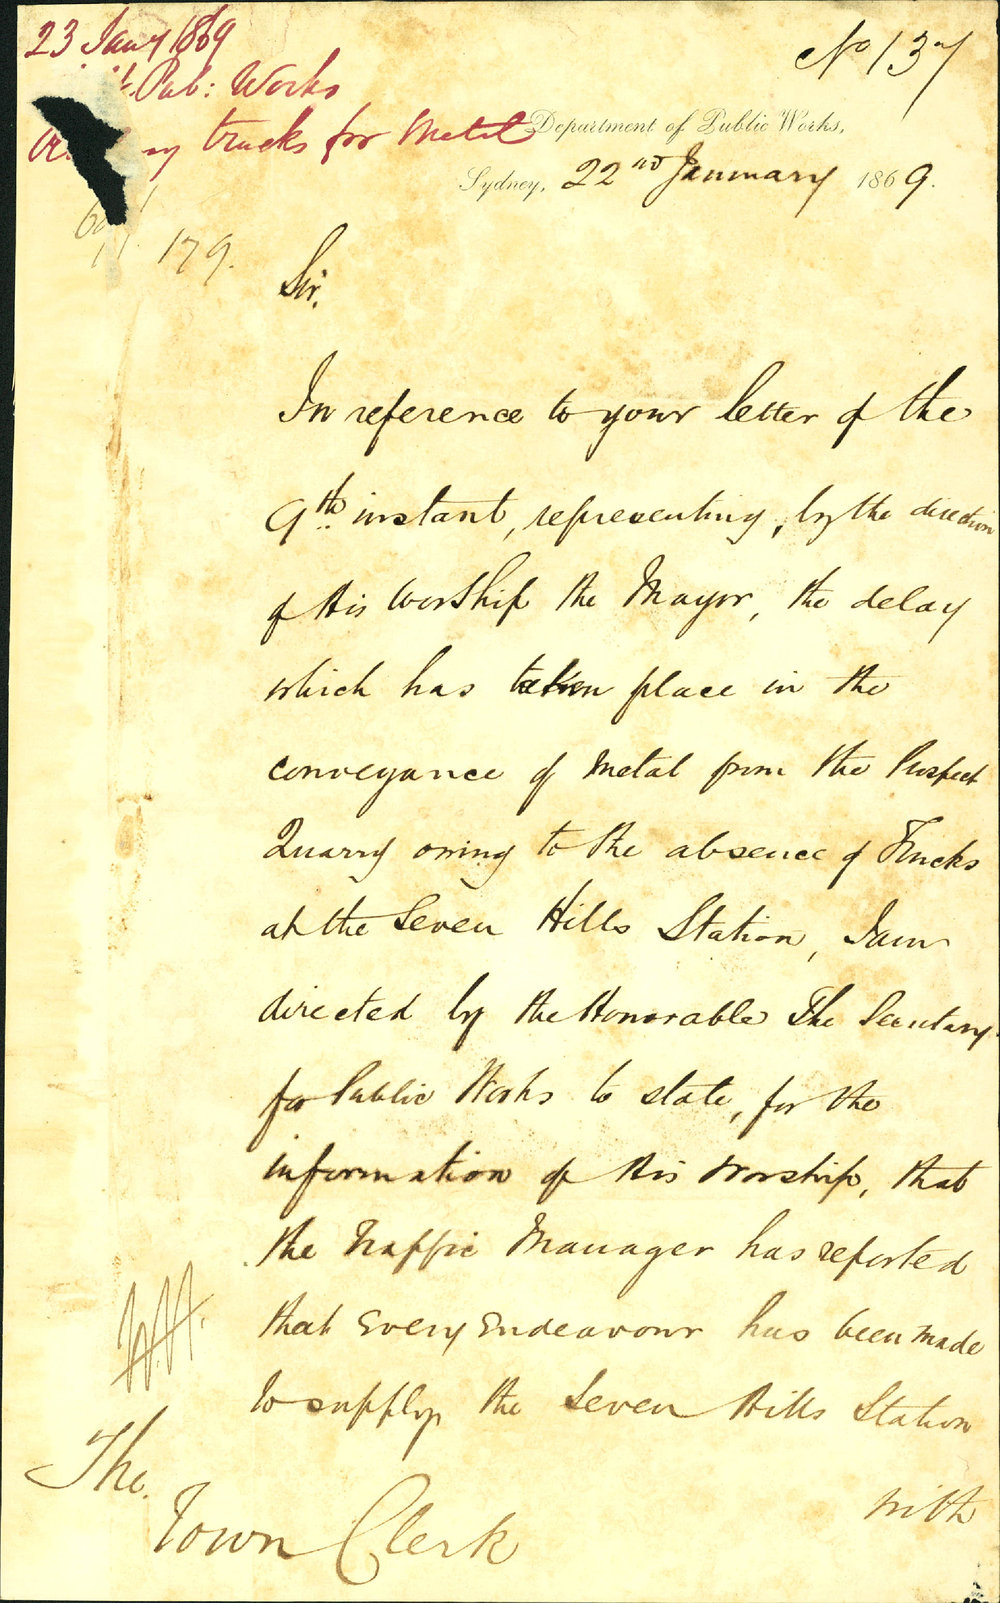 23 Jany 1869
Pub: Works
trucks for Metal
No 137
Department of Public Works,
Sydney, 22nd January 1869.
179.
Sir.
In reference to your letter of the
9th instant, representing, by the direction
of His Worship the Mayor, the delay
which has taken place in the
conveyance of Metal from the Prospect
Quarry owing to the absence of Trucks
at the Seven Hills Station, I am
directed by the Honorable The Secretary
for Public Works to state, for the
information of His Worship, that
the Traffic Manager has reported
that every endeavour has been made
to supply the Seven Hills Station
with
The
Town Clerk